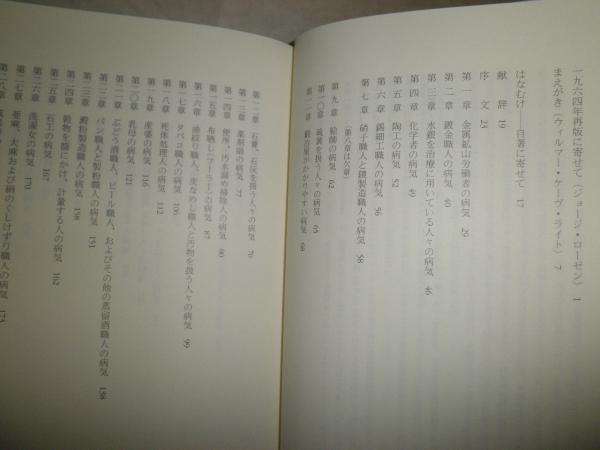 一九六四年再版に寄せて（ジョージ・ローゼン） 1
まえがき（ウィルマー・ケーヴ・ライト） 7
はなむけ——自著に寄せて 17
献辞 19
序文 23
第一章 金属鉱山労働者の病気 29
第二章 鍍金職人の病気 40
第三章 水銀を治療に用いている人々の病気 46
第四章 化学者の病気 49
第五章 陶工の病気 52
第六章 錫細工職人の病気 56
第七章 硝子職人と鏡製造職人の病気 58
（第八章は欠章）
第九章 絵師の病気 62
第一〇章 硫黄を扱う人々の病気 65
第一一章 鍛冶屋がかかりやすい病気 68
第一二章 石膏、石灰を扱う人々の病気 70
第一三章 薬剤職の病気 77
第一四章 便所、汚水溜め掃除人の病気 80
第一五章 布晒し（フーラー）の病気 87
第一六章 油絞り職人、皮なめし職人と汚物を扱う人々の病気 90
第一七章 タバコ職人の病気 106
第一八章 死体処理人の病気 112
第一九章 産婆の病気 116
第二〇章 乳母の病気 121
第二一章 ぶどう酒職人、ビール職人、およびその他の蒸留酒職人の病気 138
第二二章 パン職人と製粉職人の病気 151
第二三章 澱粉製造職人の病気 158
第二四章 穀物を篩にかけ、計量する人の病気 162
第二五章 石工の病気 167
第二六章 洗濯女の病気 170
第二七章 亜麻、大麻および絹のくしけずり職人の病気 173
第二八章